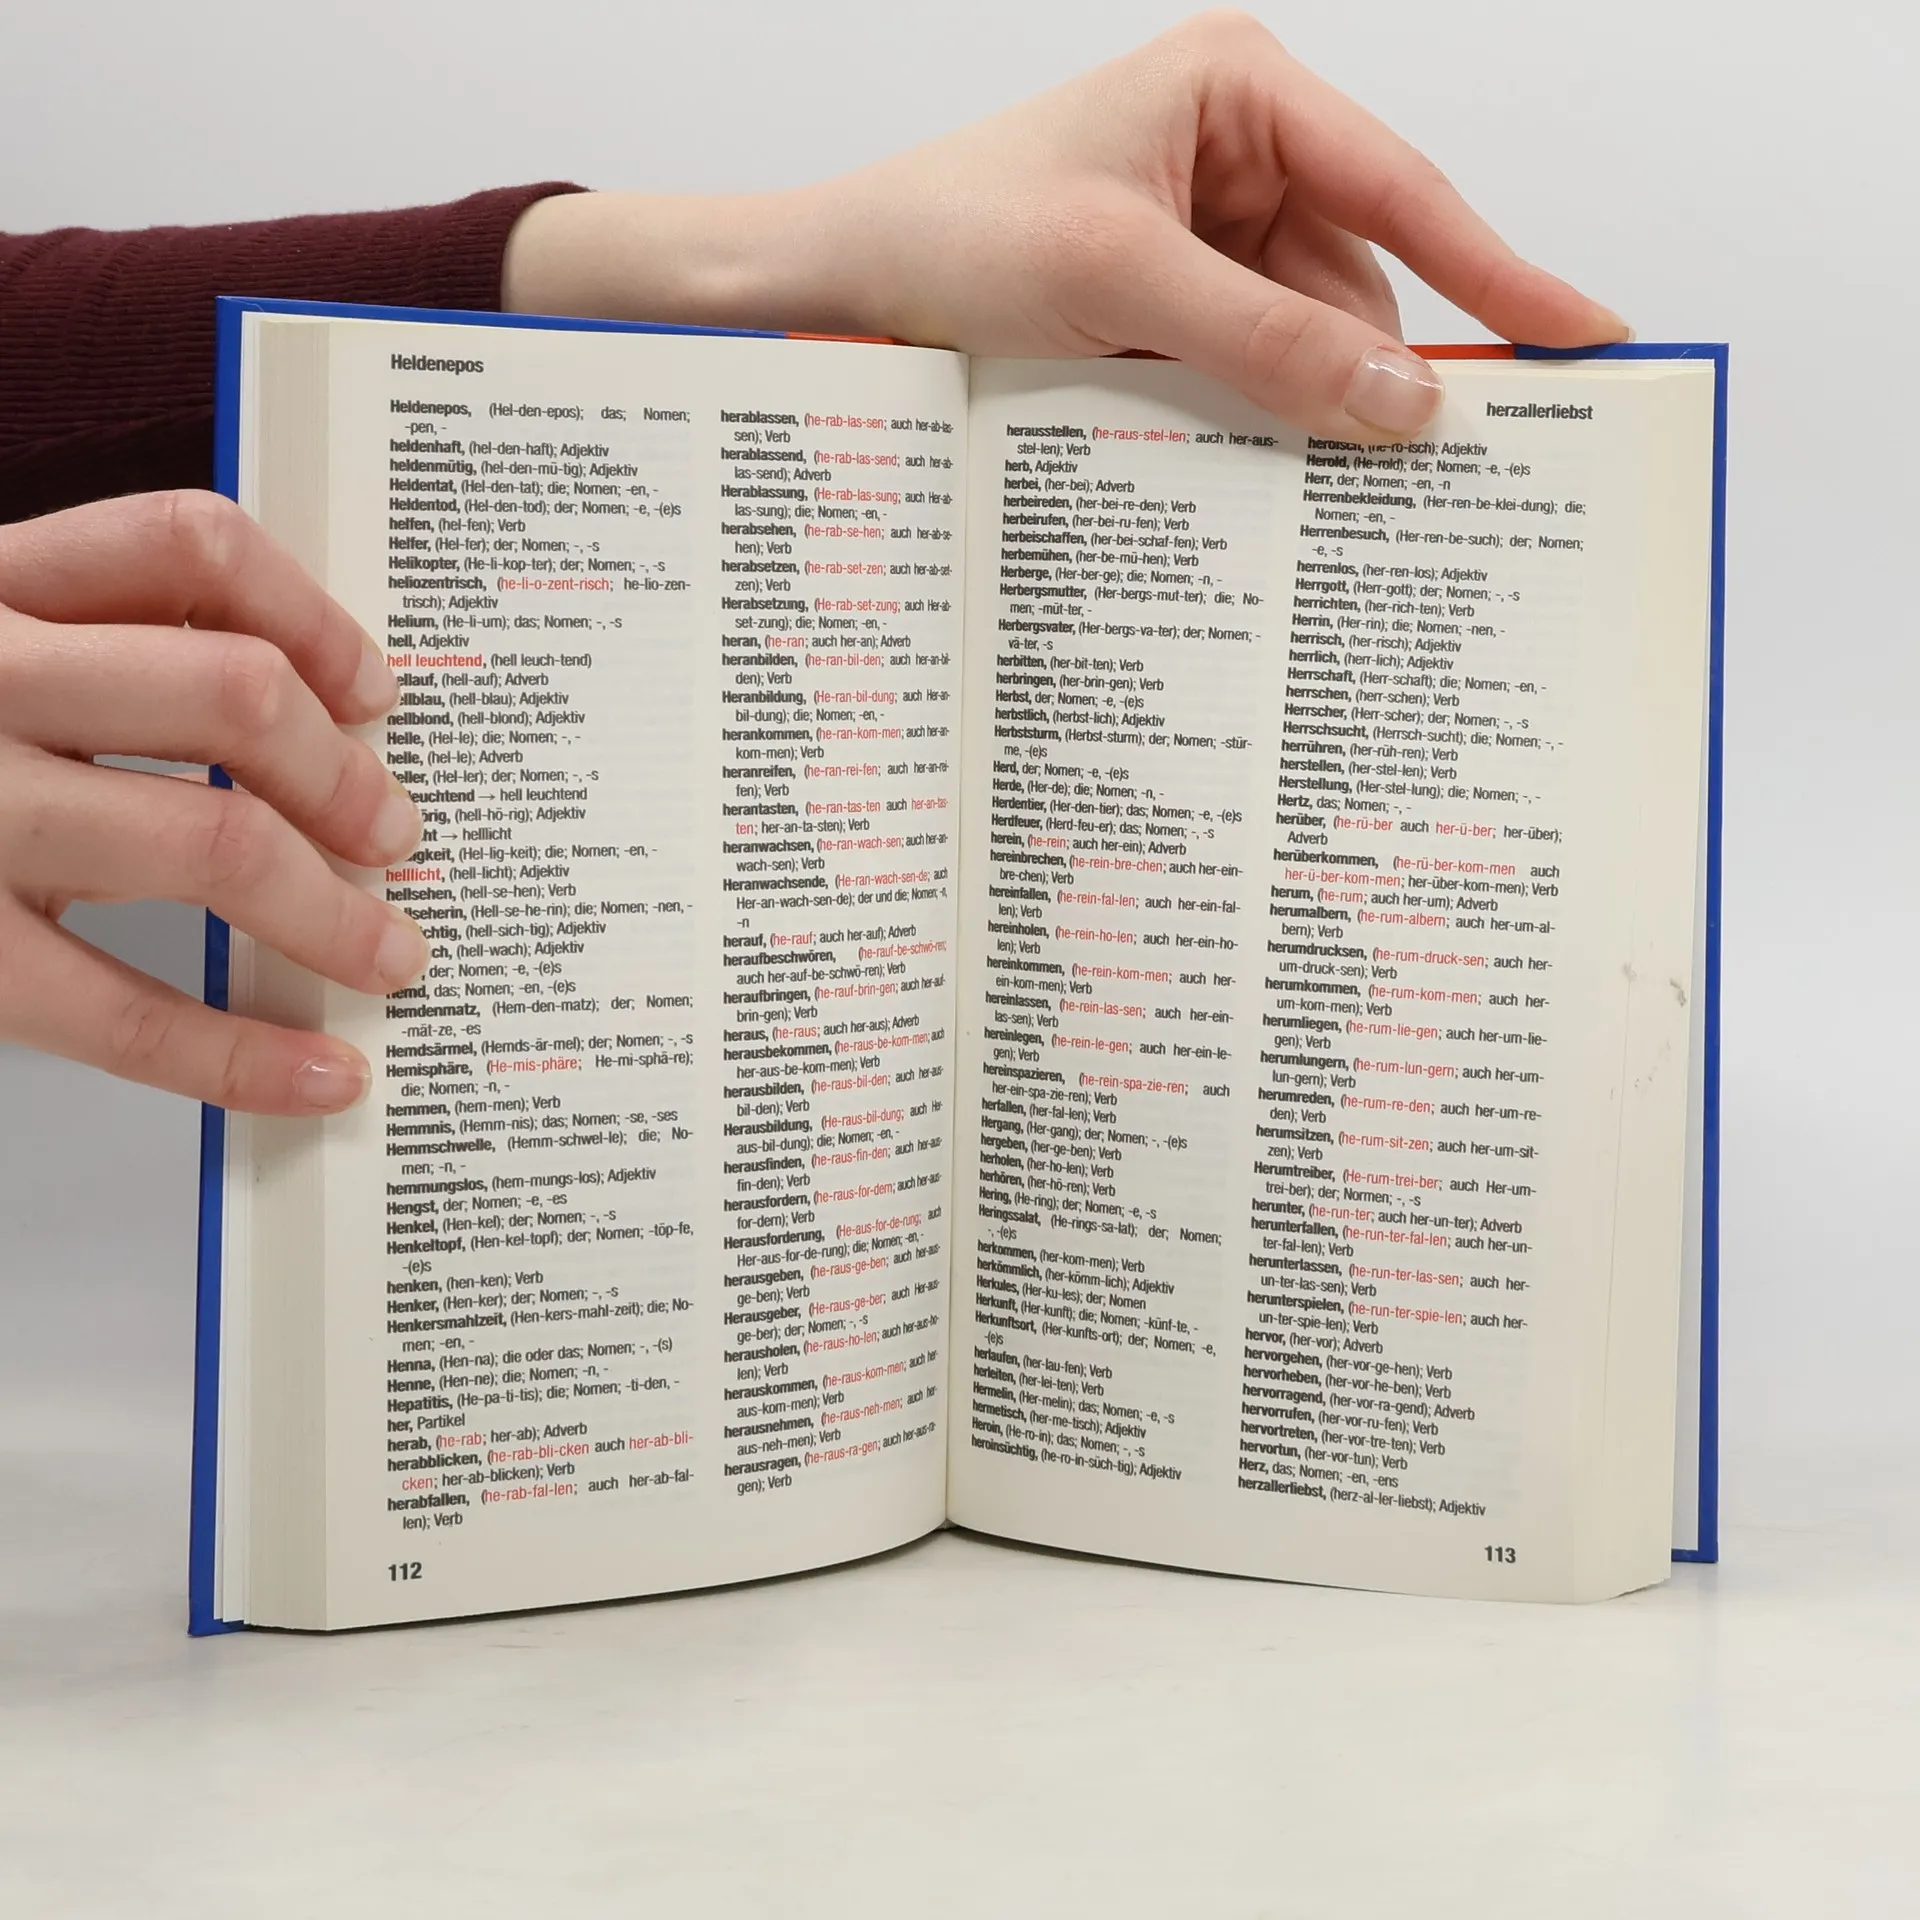 Heldenepos
Heldenepos, (Hel-den-epos); das; Nomen;
-pen, -
heldenhaft, (hel-den-haft); Adjektiv
heldenmütig, (hel-den-mü-tig); Adjektiv
Heldentat, (Hel-den-tat); die; Nomen; -en, -
Heldentod, (Hel-den-tod); der; Nomen; -e, -(e)s
helfen, (hel-fen); Verb
Helfer, (Hel-fer); der; Nomen; -, -s
Helikopter, (He-li-kop-ter); der; Nomen; -, -s
heliozentrisch, (he-li-o-zent-risch; he-lio-zen-
trisch); Adjektiv
Helium, (He-li-um); das; Nomen; -, -s
hell, Adjektiv
hell leuchtend, (hell leuch-tend)
ellauf, (hell-auf); Adverb
ellblau, (hell-blau); Adjektiv
hellblond, (hell-blond); Adjektiv
Helle, (Hel-le); die; Nomen; -, -
helle, (hel-le); Adverb
eller, (Hel-ler); der; Nomen; -, -s
euchtend → hell leuchtend
örig, (hell-hö-rig); Adjektiv
ht → helllicht
igkeit, (Hel-lig-keit); die; Nomen; -en, -
helllicht, (hell-licht); Adjektiv
hellsehen, (hell-se-hen); Verb
llseherin, (Hell-se-he-rin); die; Nomen; -nen, -
ichtig, (hell-sich-tig); Adjektiv
ch, (hell-wach); Adjektiv
, der; Nomen; -e, -(e)s
Hemd, das; Nomen; -en, -(e)s
Hemdenmatz, (Hem-den-matz); der; Nomen;
-mät-ze, -es
Hemdsärmel, (Hemds-är-mel); der; Nomen; -, -s
Hemisphäre, (He-mis-phäre; He-mi-sphä-re);
die; Nomen; -n, -
hemmen, (hem-men); Verb
Hemmnis, (Hemm-nis); das; Nomen; -se, -ses
Hemmschwelle, (Hemm-schwel-le); die; No-
men; -n, -
hemmungslos, (hem-mungs-los); Adjektiv
Hengst, der; Nomen; -e, -es
Henkel, (Hen-kel); der; Nomen; -, -s
Henkeltopf, (Hen-kel-topf); der; Nomen; -töp-fe,
-(e)s
henken, (hen-ken); Verb
Henker, (Hen-ker); der; Nomen; -, -s
Henkersmahlzeit, (Hen-kers-mahl-zeit); die; No-
men; -en, -
Henna, (Hen-na); die oder das; Nomen; -, -(s)
Henne, (Hen-ne); die; Nomen; -n, -
Hepatitis, (He-pa-ti-tis); die; Nomen; -ti-den, -
her, Partikel
herab, (he-rab; her-ab); Adverb
herabblicken, (he-rab-bli-cken auch her-ab-bli-
cken; her-ab-blicken); Verb
herabfallen, (he-rab-fal-len; auch her-ab-fal-
len); Verb
herablassen, (he-rab-las-sen; auch her-ab-las-
sen); Verb
herablassend, (he-rab-las-send; auch her-ab-
las-send); Adverb
Herablassung, (He-rab-las-sung; auch Her-ab-
las-sung); die; Nomen; -en, -
herabsehen, (he-rab-se-hen; auch her-ab-se-
hen); Verb
herabsetzen, (he-rab-set-zen; auch her-ab-set-
zen); Verb
Herabsetzung, (He-rab-set-zung; auch Her-ab-
set-zung); die; Nomen; -en, -
heran, (he-ran; auch her-an); Adverb
heranbilden, (he-ran-bil-den; auch her-an-bil-
den); Verb
Heranbildung, (He-ran-bil-dung; auch Her-an-
bil-dung); die; Nomen; -en, -
herankommen, (he-ran-kom-men; auch her-an-
kom-men); Verb
heranreifen, (he-ran-rei-fen; auch her-an-rei-
fen); Verb
herantasten, (he-ran-tas-ten auch her-an-tas-
ten; her-an-ta-sten); Verb
heranwachsen, (he-ran-wach-sen; auch her-an-
wach-sen); Verb
Heranwachsende, (He-ran-wach-sen-de; auch
Her-an-wach-sen-de); der und die; Nomen; -n,
-n
herauf, (he-rauf; auch her-auf); Adverb
heraufbeschwören, (he-rauf-be-schwö-ren;
auch her-auf-be-schwö-ren); Verb
heraufbringen, (he-rauf-brin-gen; auch her-auf-
brin-gen); Verb
heraus, (he-raus; auch her-aus); Adverb
herausbekommen, (he-raus-be-kom-men; auch
her-aus-be-kom-men); Verb
herausbilden, (he-raus-bil-den; auch her-aus-
bil-den); Verb
Herausbildung, (He-raus-bil-dung; auch Her-
aus-bil-dung); die; Nomen; -en, -
herausfinden, (he-raus-fin-den; auch her-aus-
fin-den); Verb
herausfordern, (he-raus-for-dern; auch her-aus-
for-dern); Verb
Herausforderung, (He-aus-for-de-rung; auch
Her-aus-for-de-rung); die; Nomen; -en, -
herausgeben, (he-raus-ge-ben; auch her-aus-
ge-ben); Verb
Herausgeber, (He-raus-ge-ber; auch Her-aus-
ge-ber); der; Nomen; -, -s
herausholen, (he-raus-ho-len; auch her-aus-ho-
len); Verb
herauskommen, (he-raus-kom-men; auch her-
aus-kom-men); Verb
herausnehmen, (he-raus-neh-men; auch her-
aus-neh-men); Verb
herausragen, (he-raus-ra-gen; auch her-aus-ra-
gen); Verb
112
herzallerliebst
herausstellen, (he-raus-stel-len; auch her-aus-
stel-len); Verb
herb, Adjektiv
herbei, (her-bei); Adverb
herbeireden, (her-bei-re-den); Verb
herbeirufen, (her-bei-ru-fen); Verb
herbeischaffen, (her-bei-schaf-fen); Verb
herbemühen, (her-be-mü-hen); Verb
Herberge, (Her-ber-ge); die; Nomen; -n, -
Herbergsmutter, (Her-bergs-mut-ter); die; No-
men; -müt-ter, -
Herbergsvater, (Her-bergs-va-ter); der; Nomen; -
vä-ter, -s
herbitten, (her-bit-ten); Verb
herbringen, (her-brin-gen); Verb
Herbst, der; Nomen; -e, -(e)s
herbstlich, (herbst-lich); Adjektiv
Herbststurm, (Herbst-sturm); der; Nomen; -stür-
me, -(e)s
Herd, der; Nomen; -e, -(e)s
Herde, (Her-de); die; Nomen; -n, -
Herdentier, (Her-den-tier); das; Nomen; -e, -(e)s
Herdfeuer, (Herd-feu-er); das; Nomen; -, -s
herein, (he-rein; auch her-ein); Adverb
hereinbrechen, (he-rein-bre-chen; auch her-ein-
bre-chen); Verb
hereinfallen, (he-rein-fal-len; auch her-ein-fal-
len); Verb
hereinholen, (he-rein-ho-len; auch her-ein-ho-
len); Verb
hereinkommen, (he-rein-kom-men; auch her-
ein-kom-men); Verb
hereinlassen, (he-rein-las-sen; auch her-ein-
las-sen); Verb
hereinlegen, (he-rein-le-gen; auch her-ein-le-
gen); Verb
hereinspazieren, (he-rein-spa-zie-ren; auch
her-ein-spa-zie-ren); Verb
herfallen, (her-fal-len); Verb
Hergang, (Her-gang); der; Nomen; -, -(e)s
hergeben, (her-ge-ben); Verb
herholen, (her-ho-len); Verb
herhören, (her-hö-ren); Verb
Hering, (He-ring); der; Nomen; -e, -s
Heringssalat, (He-rings-sa-lat); der; Nomen;
-, -(e)s
herkommen, (her-kom-men); Verb
herkömmlich, (her-kömm-lich); Adjektiv
Herkules, (Her-ku-les); der; Nomen
Herkunft, (Her-kunft); die; Nomen; -künf-te, -
Herkunftsort, (Her-kunfts-ort); der; Nomen; -e,
-(e)s
herlaufen, (her-lau-fen); Verb
herleiten, (her-lei-ten); Verb
Hermelin, (Her-melin); das; Nomen; -e, -s
hermetisch, (her-me-tisch); Adjektiv
Heroin, (He-ro-in); das; Nomen; -, -s
heroinsüchtig, (he-ro-in-süch-tig); Adjektiv
heroisch, (he-ro-isch); Adjektiv
Herold, (He-rold); der; Nomen; -e, -(e)s
Herr, der; Nomen; -en, -n
Herrenbekleidung, (Her-ren-be-klei-dung); die;
Nomen; -en, -
Herrenbesuch, (Her-ren-be-such); der; Nomen;
-e, -s
herrenlos, (her-ren-los); Adjektiv
Herrgott, (Herr-gott); der; Nomen; -, -s
herrichten, (her-rich-ten); Verb
Herrin, (Her-rin); die; Nomen; -nen, -
herrisch, (her-risch); Adjektiv
herrlich, (herr-lich); Adjektiv
Herrschaft, (Herr-schaft); die; Nomen; -en, -
herrschen, (herr-schen); Verb
Herrscher, (Herr-scher); der; Nomen; -, -s
Herrschsucht, (Herrsch-sucht); die; Nomen; -, -
herrühren, (her-rüh-ren); Verb
herstellen, (her-stel-len); Verb
Herstellung, (Her-stel-lung); die; Nomen; -, -
Hertz, das; Nomen; -, -
herüber, (he-rü-ber auch her-ü-ber; her-über);
Adverb
herüberkommen, (he-rü-ber-kom-men auch
her-ü-ber-kom-men; her-über-kom-men); Verb
herum, (he-rum; auch her-um); Adverb
herumalbern, (he-rum-albern; auch her-um-al-
bern); Verb
herumdrucksen, (he-rum-druck-sen; auch her-
um-druck-sen); Verb
herumkommen, (he-rum-kom-men; auch her-
um-kom-men); Verb
herumliegen, (he-rum-lie-gen; auch her-um-lie-
gen); Verb
herumlungern, (he-rum-lun-gern; auch her-um-
lun-gern); Verb
herumreden, (he-rum-re-den; auch her-um-re-
den); Verb
herumsitzen, (he-rum-sit-zen; auch her-um-sit-
zen); Verb
Herumtreiber, (He-rum-trei-ber; auch Her-um-
trei-ber); der; Normen; -, -s
herunter, (he-run-ter; auch her-un-ter); Adverb
herunterfallen, (he-run-ter-fal-len; auch her-un-
ter-fal-len); Verb
herunterlassen, (he-run-ter-las-sen; auch her-
un-ter-las-sen); Verb
herunterspielen, (he-run-ter-spie-len; auch her-
un-ter-spie-len); Verb
hervor, (her-vor); Adverb
hervorgehen, (her-vor-ge-hen); Verb
hervorheben, (her-vor-he-ben); Verb
hervorragend, (her-vor-ra-gend); Adverb
hervorrufen, (her-vor-ru-fen); Verb
hervortreten, (her-vor-tre-ten); Verb
hervortun, (her-vor-tun); Verb
Herz, das; Nomen; -en, -ens
herzallerliebst, (herz-al-ler-liebst); Adjektiv
113